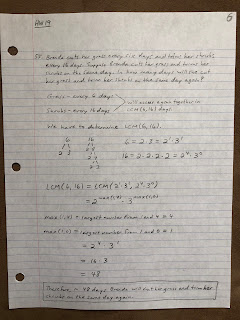 HW 19
6
55. Brenda cuts her grass every six days and trims her shrubs
every 16 days. Suppose Brenda cuts her grass and trims her
shrubs on the same day. In how many days will she cut
her grass and trim her shrubs on the same day again?
Grass - every 6 days
Shrubs - every 16 days
will occur again together in
LCM(6,16) days.
We have to determine LCM(6,16).
6 16 6 = 2·3 = 2¹·3¹
2 3 2 8
2 4
2 2
16 = 2·2·2·2 = 2⁴·3⁰
LCM(6,16) = LCM(2¹·3¹, 2⁴·3⁰)
= 2^max(1,4) · 3^max(1,0)
max(1,4) = largest number from 1 and 4 = 4
max(1,0) = largest number from 1 and 0 = 1
= 2⁴·3¹
= 16·3
= 48
Therefore in 48 days Brenda will cut her grass and trim her
shrubs on the same day again.